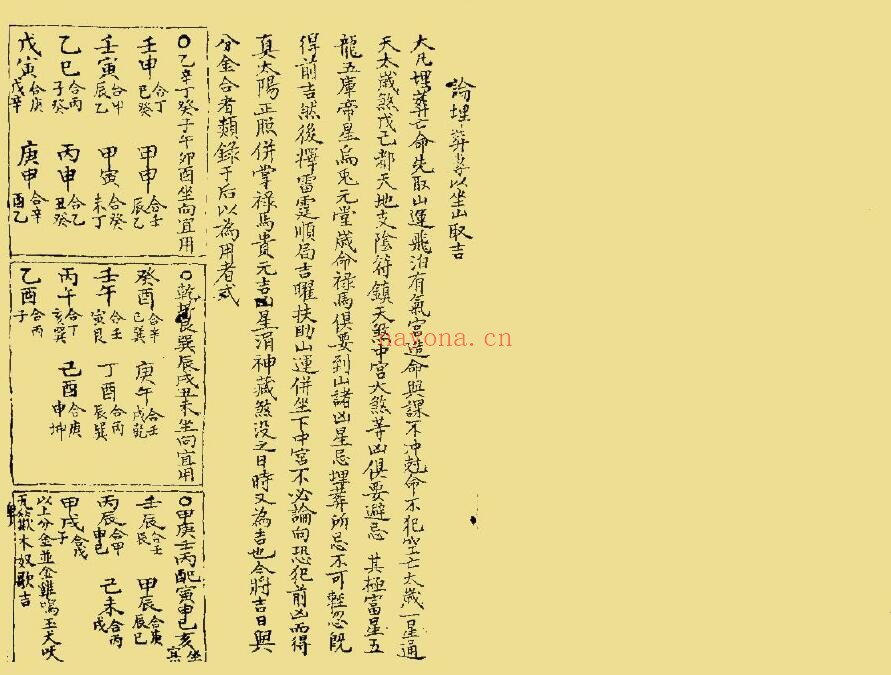 論埋葬專以坐山取吉
大凡埋葬亡命先取山運飛泊有氣宮造命與課不冲尅命不犯空亡太歲一星通
天太歲煞戊己都天地支陰符鎮天煞中宮大煞等凶俱要避忌 其極富星五
龍五庫帝星烏兎元堂歲命祿馬俱要到山諸凶星忌埋葬所忌不可輕忽既
得前吉然後擇雷霆順局吉曜扶助山運併坐下中宮不必論向恐犯前凶而得
真太陽正照併掌祿馬貴元吉凶星涓神藏煞沒之日時又為吉也今將吉日與
分金合者類錄于后以為用者式
○乙辛丁癸子午卯酉坐向宜用
壬申 合丁巳癸 甲申 合壬辰乙
壬寅 合甲辰乙 甲寅 合癸未丁
乙巳 合丙子癸 丙申 合乙丑癸
戊寅 合庚戊辛 庚申 合辛酉乙
○乾坤艮巽辰戌丑未坐向宜用
癸酉 合辛巳巽 庚午 合壬戌乾
壬午 合壬寅艮 丁酉 合丙辰巽
丙午 合丁亥巽 己酉 合庚申坤
乙酉 合丙子
○甲庚壬丙配寅申巳亥坐宜
壬辰 合壬辰 甲辰 合庚辰巳
丙辰 合甲申巳 己未 合丙戌
甲戌 合戊子
以上分金並金雞鳴玉犬吠
木奴歌吉
nayona.cn